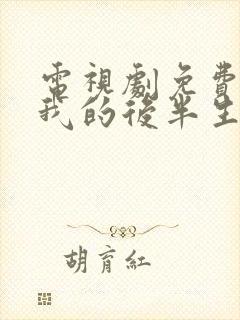 電視劇免費
我的後半生
胡育紅